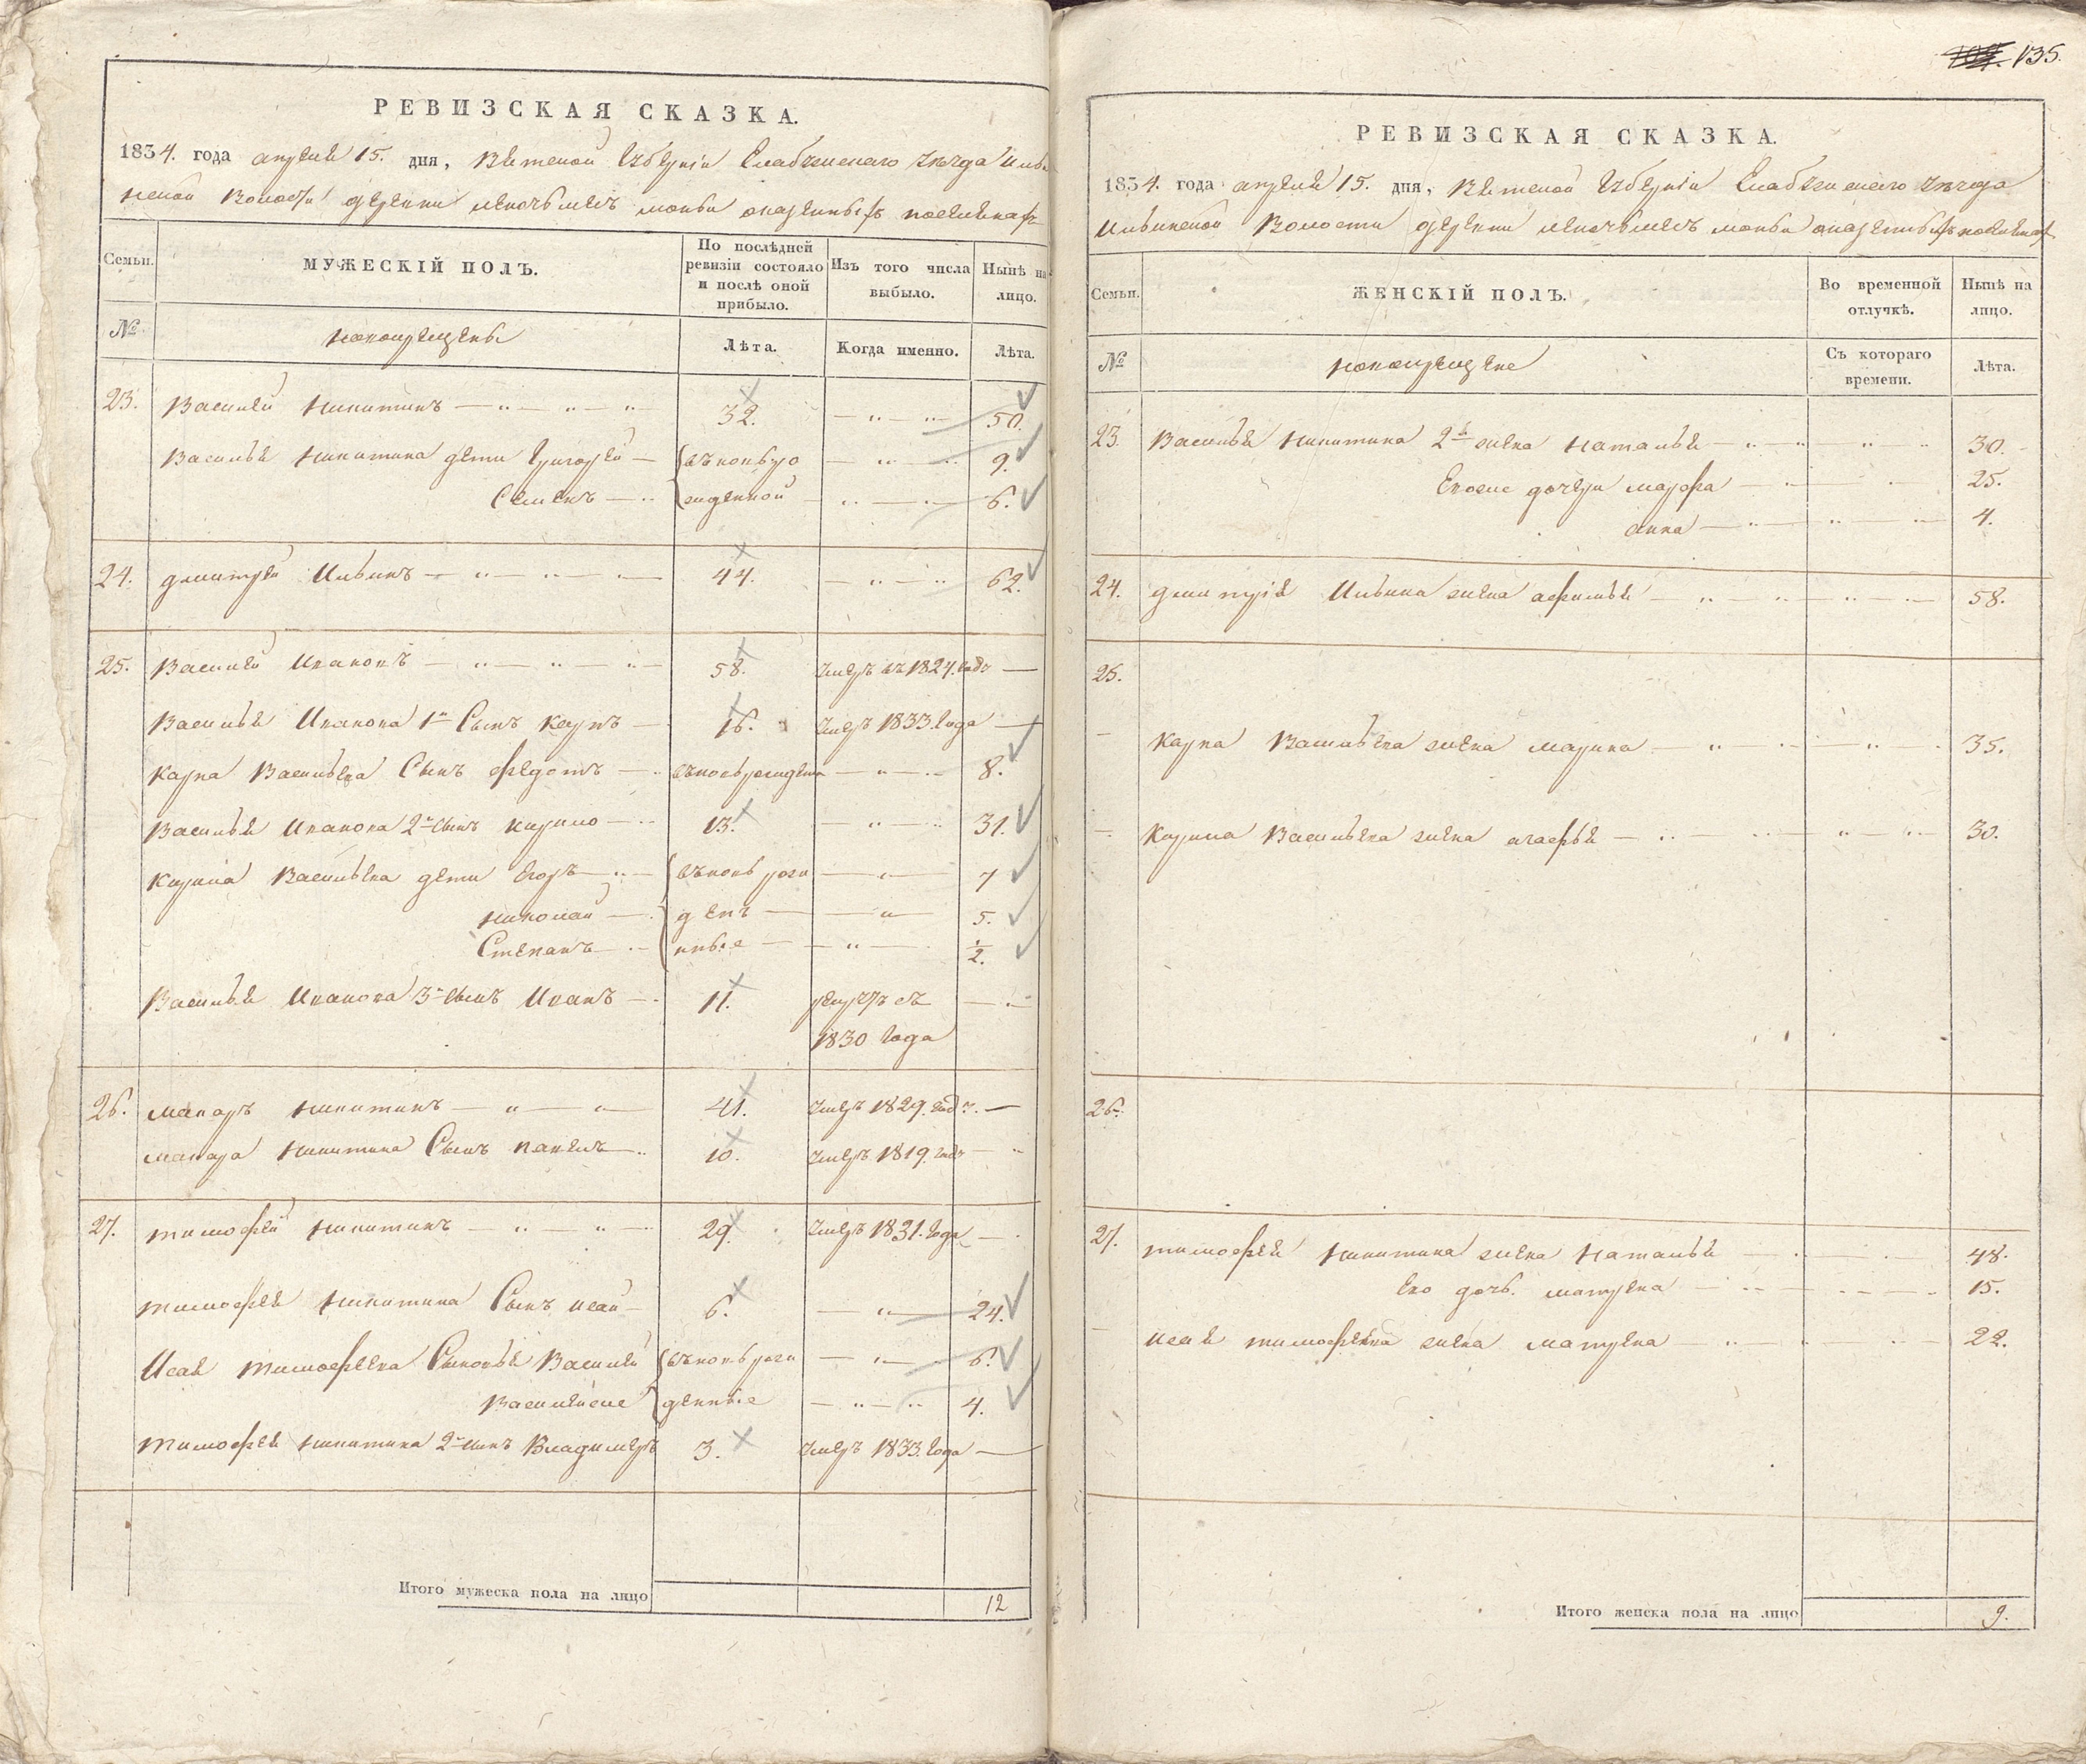 РЕВИЗСКАЯ СКАЗКА.
1834. года апреля 15. дня, Вятской Губернiи Елабужскаго уезда Ильи
нской Волости деревни
Семьи. МУЖЕСКІЙ ПОЛЪ. По послѣдней ревизіи состояло и послѣ оной прибыло. Изъ того числа выбыло. Нынѣ на лицо.
№ новокрещены Лѣта. Когда именно. Лѣта.
23. Василей Никитинъ 32. 50.
Василья Никитина дети Григорей 9.
Семенъ 6.
24. Дмитрей Ильинъ 44. 62.
25. Василей Ивановъ 58. умеръ въ 1824. годъ
Василья Иванова 1й Сынъ Карпъ 16. умеръ 1833. Года
Карпа Васильева Сынъ Федотъ 8.
Василья Иванова 2й сынъ Кирило 13. 31.
Кирила Васильева дети Егоръ вновь рож 7
Николай ден 5.
Степанъ ные 1/2.
Василья Иванова 3й сынъ Иванъ 11. рекрутъ съ
1830 Года
26. Макаръ Никитинъ 41. умеръ 1829. году.
Макара Никитина Сынъ Павелъ 10. умеръ 1819. году
27. Тимофей Никитинъ 29. умеръ 1831. Года
Тимофея Никитина Сынъ Исай 6. 24.
Исая Тимофеева Сыновья Василей вновь рож 6.
денные 4.
Тимофея Никитина 2й сынъ Владимеръ 3. умеръ 1833. Года
Итого мужеска пола на лицо 12
135.
РЕВИЗСКАЯ СКАЗКА.
1834. года апреля 15. дня, Вятской Губернiи Елабужскаго уезда
Ильинской Волости деревни
Семьи. ЖЕНСКІЙ ПОЛЪ. Во временной отлучкѣ. Нынѣ на лицо.
№ новокрещене Съ котораго времени. Лѣта.
23. Василья Никитина 2я жена Наталья 30.
дочери Марфа 25.
Анна 4.
24. Дмитрiя Ильина жена 58.
25.
Карпа Васильева жена Марина 35.
Кирила Васильева жена Агафья 30.
26.
27. Тимофея Никитина жена Наталья 48.
Ево дочь Матрена 15.
Исая Тимофеева жена Матрена 22.
Итого женска пола на лицо 9.